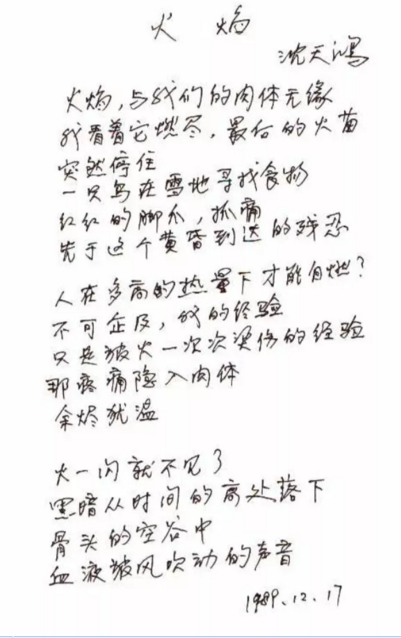 火焰
沈天鸿
火焰，与我们的肉体无缘
我看着它燃尽，最后的火苗
突然停住
一只鸟在雪地寻找食物
红红的脚爪，抓痛
先于这个黄昏到达的残忍
人在多高的热量下才能自燃？
不可企及，我的经验
只是被火一次次烫伤的经验
那疼痛隐入肉体
余烬犹温
火一闪就不见了
黑暗从时间的高处落下
骨头的空谷中
血液被风吹动的声音
1989.12.17